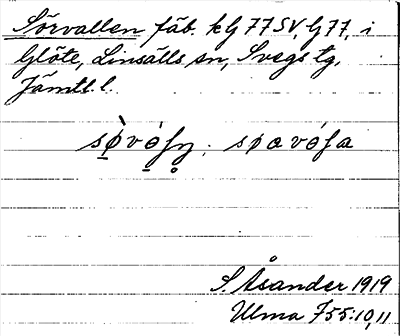 Sörvallen fäb. kG 77SV, G77, i
Glöte, Linsälls sn, Svegs tg,
Jämtl. l.
S. Åsander 1919
Ulma 755:10,11